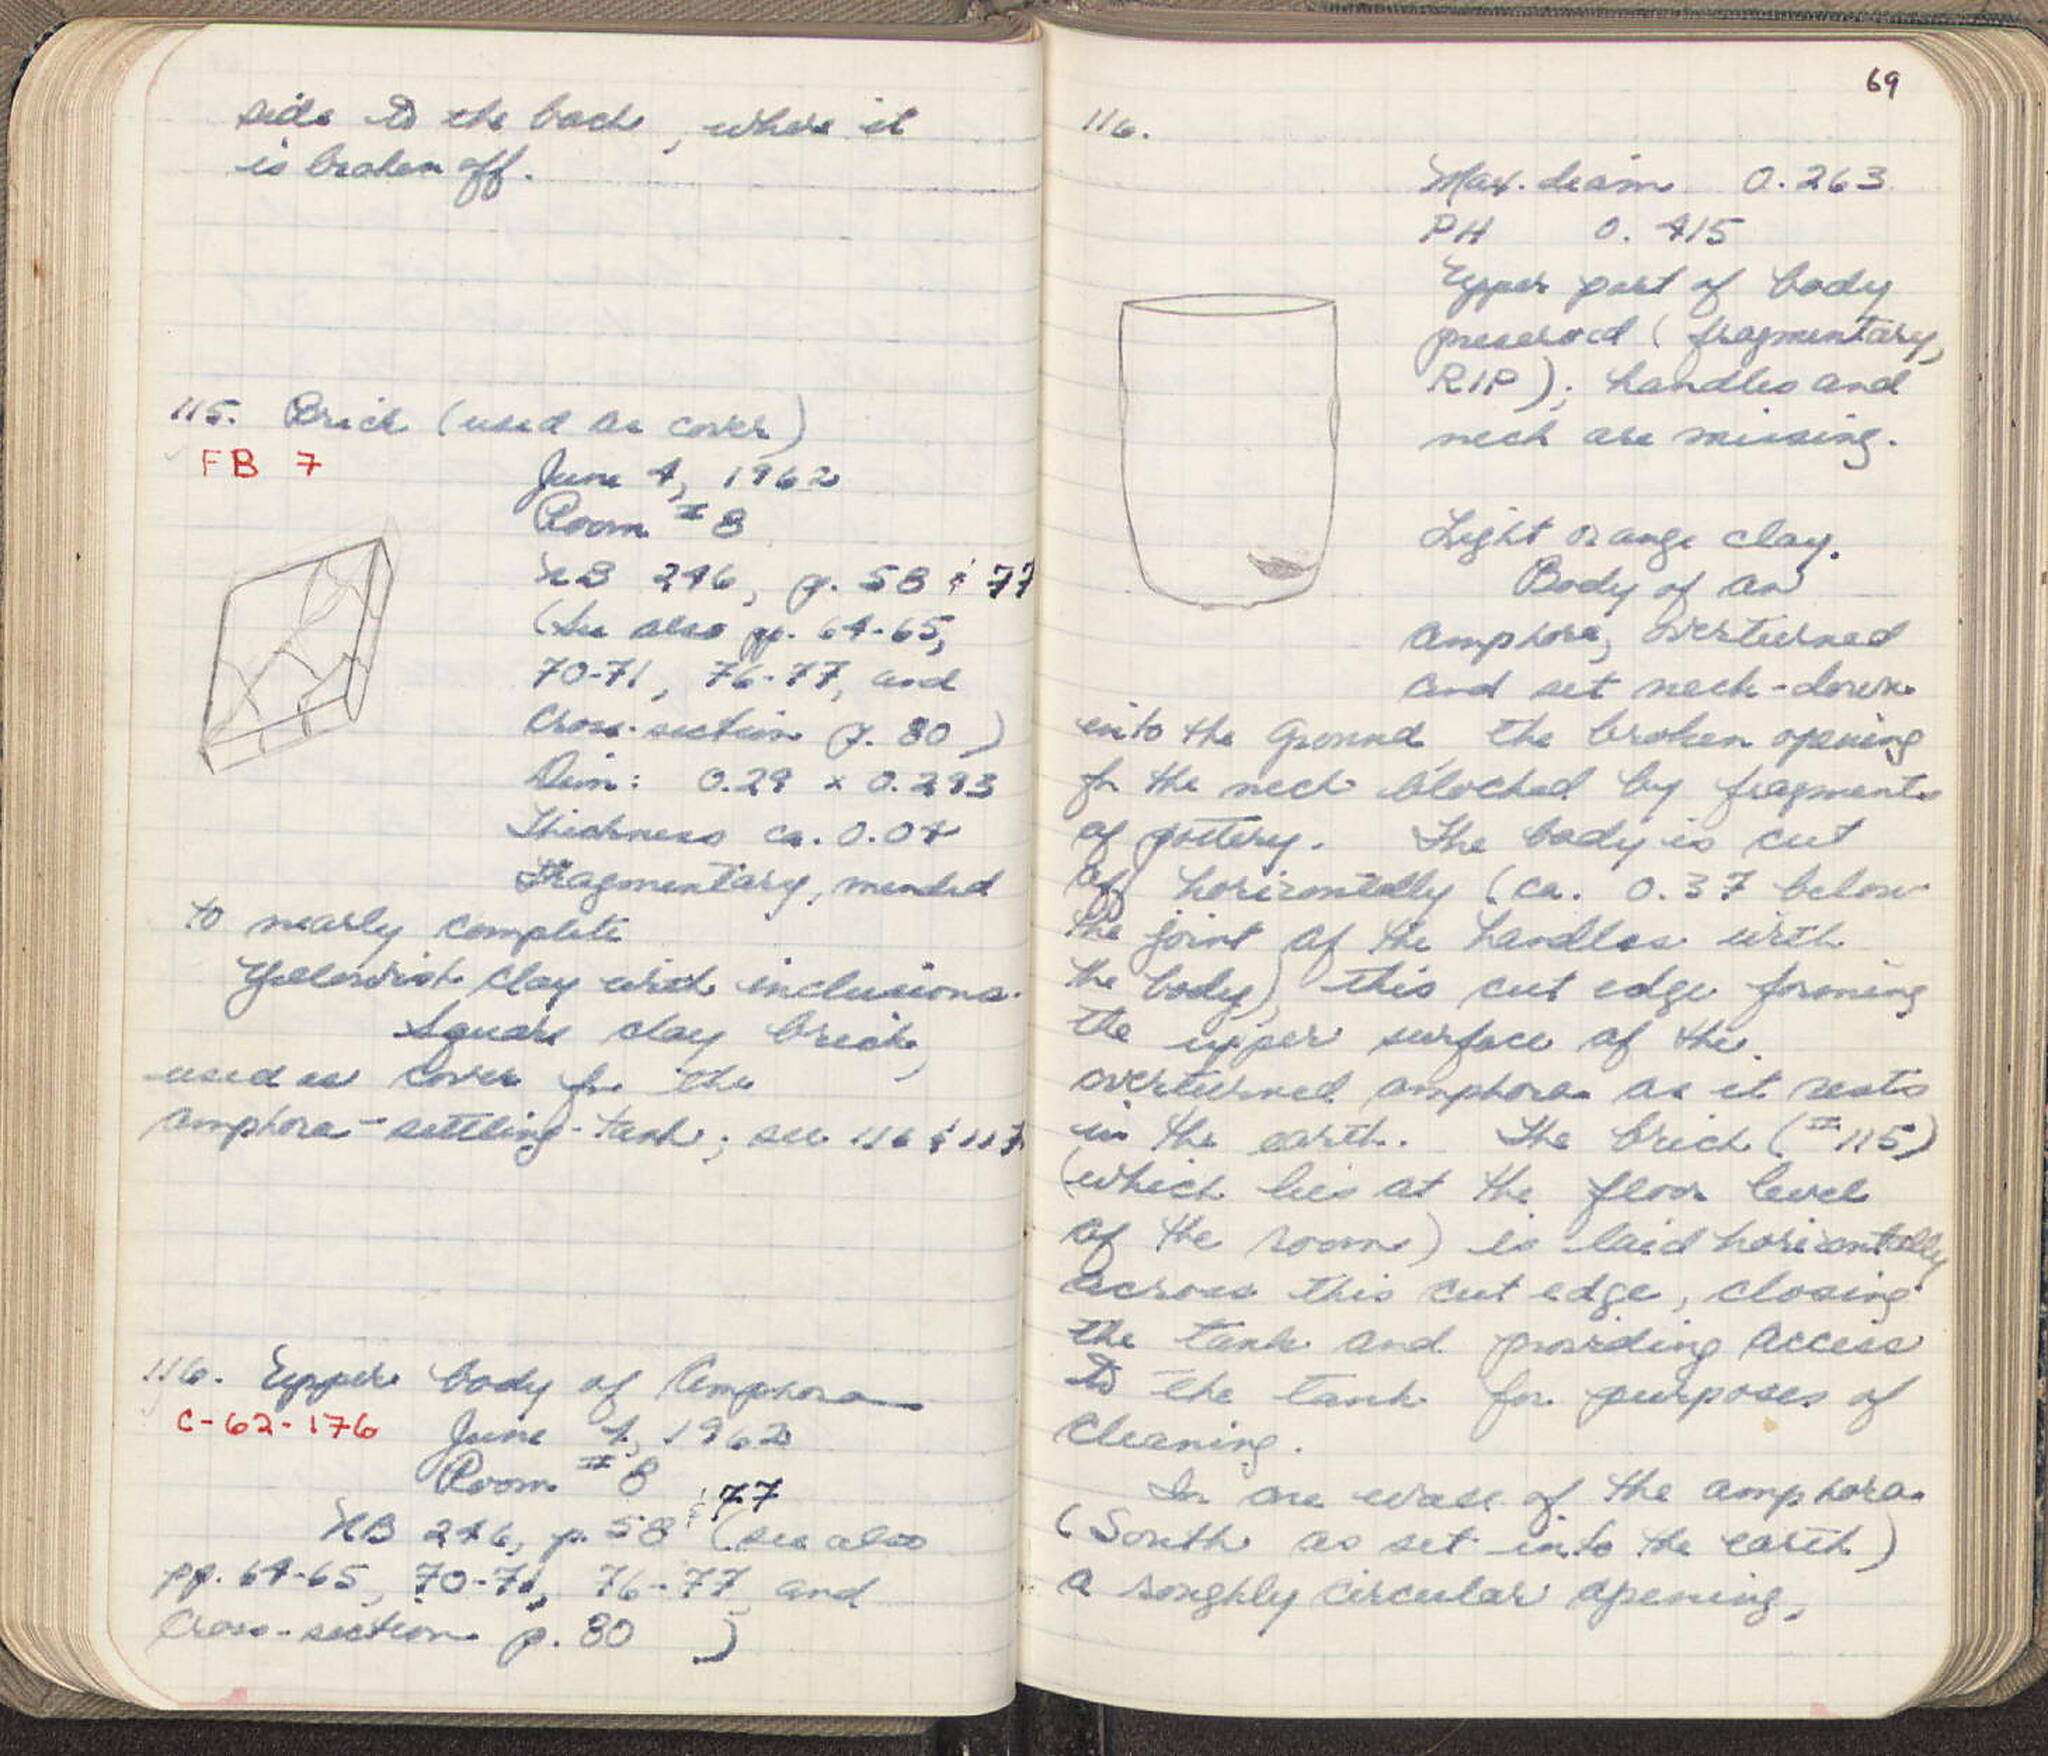 side to the back, where it
is broken off.
115. Brick (used as cover)
FB 7
June 4, 1962
Room #8
NB 246, p. 58 & 77
(See also pp. 64-65,
70-71, 76-77, and
Cross-section p. 80)
Dim: 0.29 x 0.293
Thickness ca. 0.04
Fragmentary, mended
to nearly complete
Yellowish clay with inclusions.
Square clay brick,
used as cover for the
amphora-settling-tank; see 116 & 117
116. Upper body of Amphora
C-62-176
June 4, 1962
Room #8
NB 246, p. 58 & 77 (see also
pp. 64-65, 70-71, 76-77, and
Cross-section p. 80)
69
116.
Max. diam 0.263
PH 0.415
Upper part of body
preserved (fragmentary,
RIP); handles and
neck are missing.
Light orange clay.
Body of an
amphora, overturned
and set neck-down
into the ground, the broken opening
for the neck blocked by fragments
of pottery. The body is cut
off horizontally (ca. 0.37 below
the joint of the handles with
the body), this cut edge forming
the upper surface of the
overturned amphora as it rests
in the earth. The brick (#115)
(which lies at the floor level
of the room) is laid horizontally
across this cut edge, closing
the tank and providing access
to the tank for purposes of
Cleaning.
In one wall of the amphora
(South as set into the earth)
a roughly circular opening,